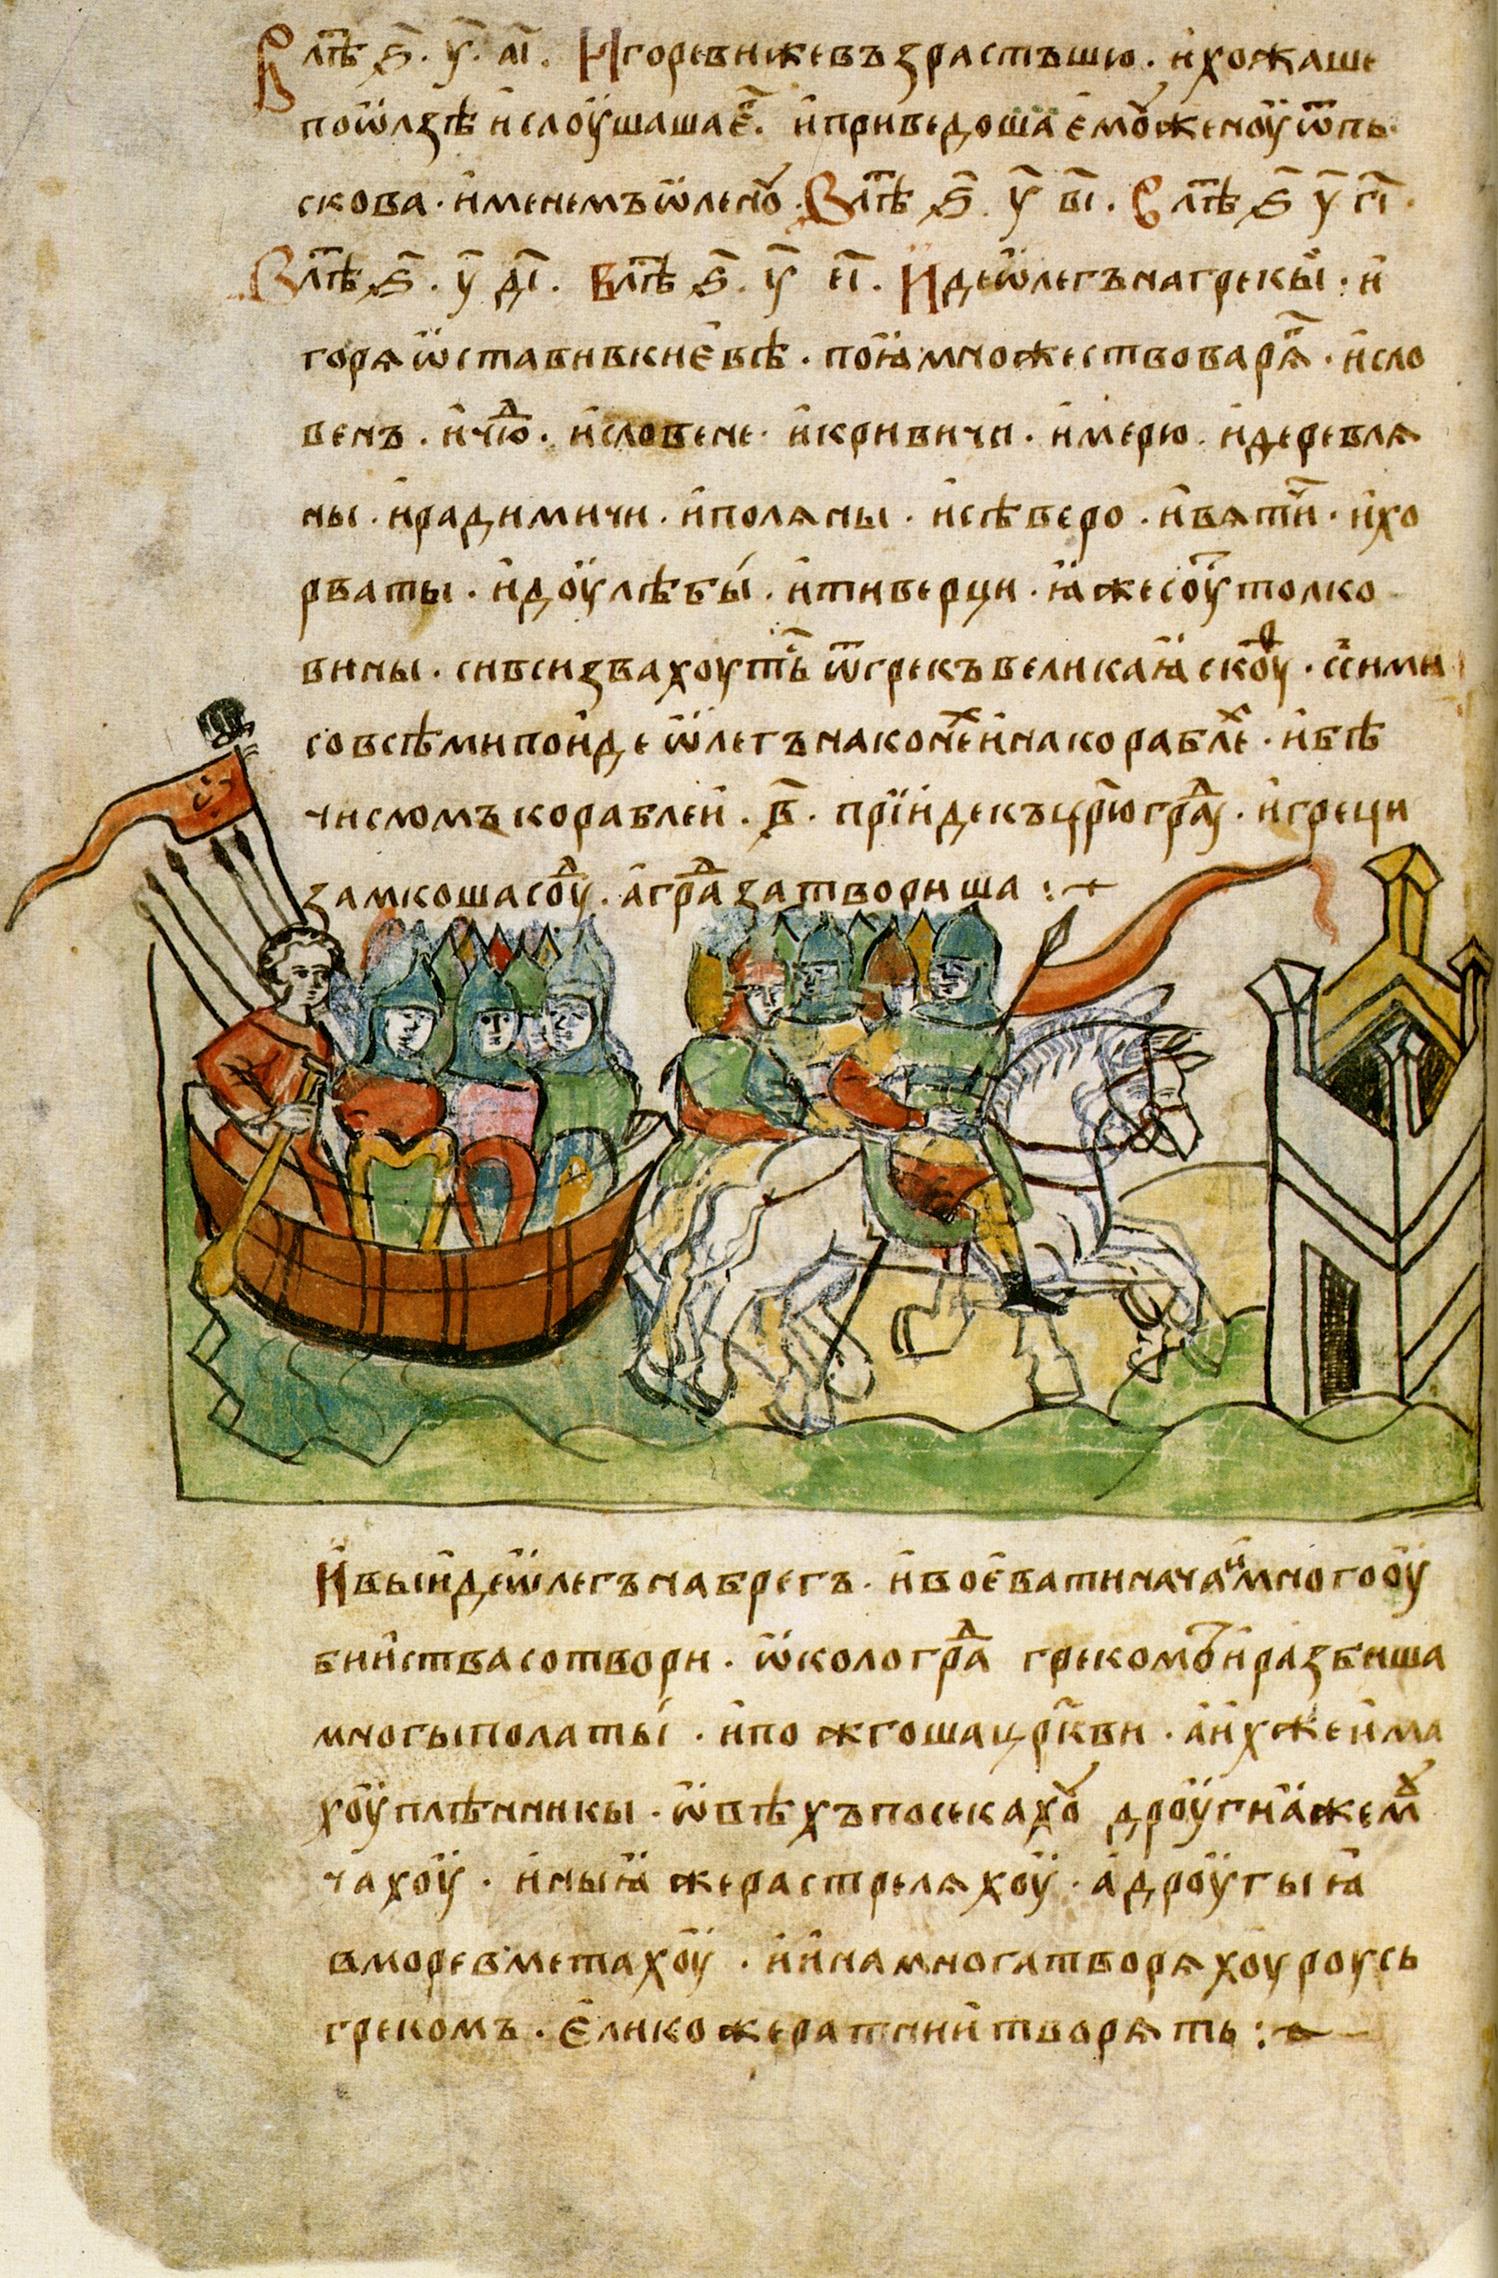 В лт҃ѣ ѕ҃ . у҃ . аı҃ . Игоревижевъзрастъшю . и҆хожаше
поѡ҆лзѣ и҆слоу҆шашае҆г҃ . и҆приведоша е҆моу҆женоу҆ ѿпь
скова . и҆менемъѡ҆леноу . В лт҃ѣ ѕ҃ . у҃ вı҃ . В лт҃ѣ ѕ҃ у҃ гı҃ .
В лт҃ѣ ѕ҃ . у҃ дı҃ . В лт҃ѣ ѕ҃ . у҃ еı҃ . Идеѡ҆легънагрекы҆ : и҆
горѧѡ҆ставивкие҆вѣ . поꙗ҆множествоварѧ҃ . и҆сло
венъ . и҆чюⷣ . и҆словене . и҆кривичи . и҆мерю . и҆деревлѧ
ны . и҆радимичи . и҆полѧны . и҆сѣверо . и҆вѧтⷱ҇и . и҆хо
рваты . и҆доу҆лѣбы . и҆тиверци . ꙗ҆жесоу҆тⷧолко
вины . сивсизвахоутⷭ҇ь ѿгрекъвеликаꙗ҆ скоуⷴ . с̑сими
совсѣмипои҆де ѡ҆легънаконеⷯи҆накораблеⷯ . и҆бѣ
числомъкораблеи҆ . в҃ . прїи҆декъцр҃югра́ⷣ . и҆греци
замкошасоуⷣ . а҆граⷣзатвориша :~
И҆выи҆деѡ҆легънабрегъ . и҆вое҆ватиначаⷩ҇многооу҆
бии҆ствасотвори . ѡ҆кологрⷣа грекомъ и҆разбиша
многыполаты . и҆пожгошацр҃кви . а҆и҆хжеи҆ма
хоу҆плѣнникы . ѡ҆вѣхъпосекахоу дроу҆гиꙗ҆жемꙋ
чахоу҆ . и҆ныꙗ҆ жерастрелѧхоу҆ . а҆дроу҆гыꙗ҆
вморевметахоу҆ . и҆и҆намногатворѧхоуроусь
грекомъ . е҆ликожератнии҆творѧть :~